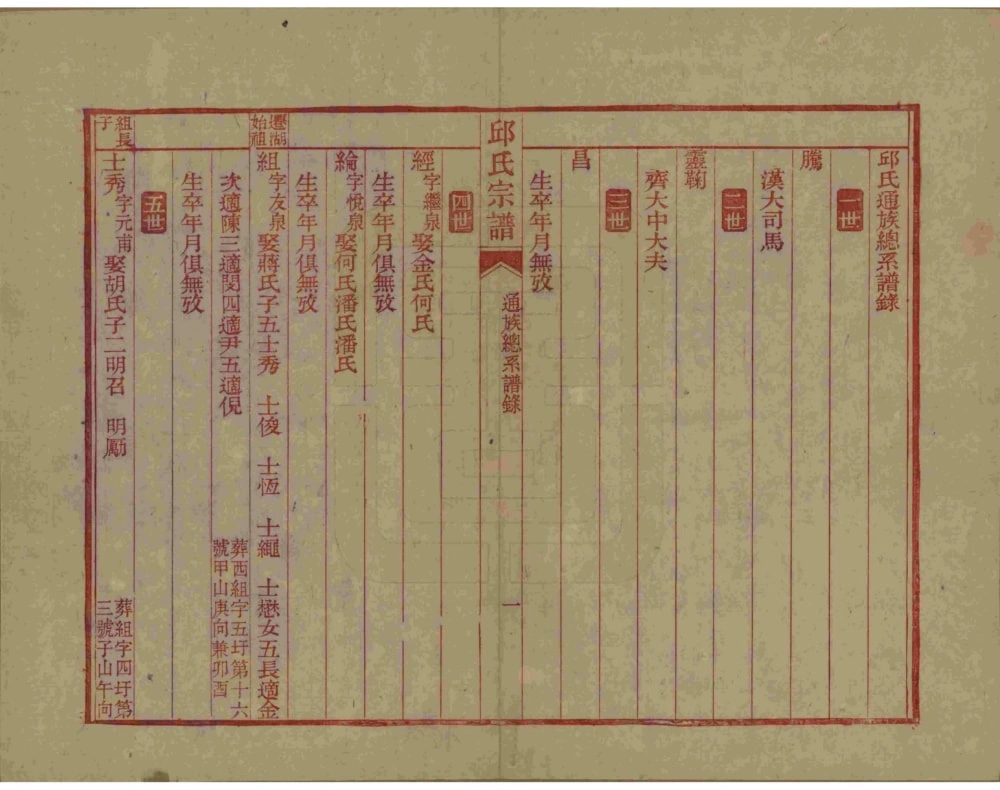 邱氏通族總系譜錄
一世
騰
漢大司馬
二世
靈鞠
齊大中大夫
三世
昌
生卒年月無攷
邱氏宗譜
通族總系譜錄
一
四世
經字繼泉娶金氏何氏
生卒年月俱無攷
綸字悅泉娶何氏潘氏潘氏
生卒年月俱無攷
遷湖始祖
組字友泉娶蔣氏子五士秀 士俊 士恆 士繩 士懋女五長適金
次適陳三適閔四適尹五適倪
葬西組字五圩第十六
號甲山庚向兼卯酉
生卒年月俱無攷
五世
組長子
士秀字元甫娶胡氏子二明召 明勵
葬組字四圩第
三號子山午向